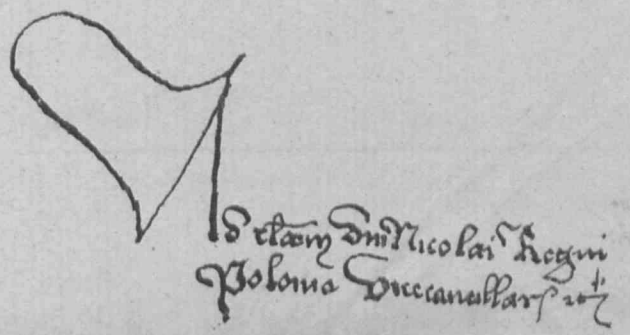 Ad rlacoem dni Nicolai Regni
Polonie Vicecancellarj etc